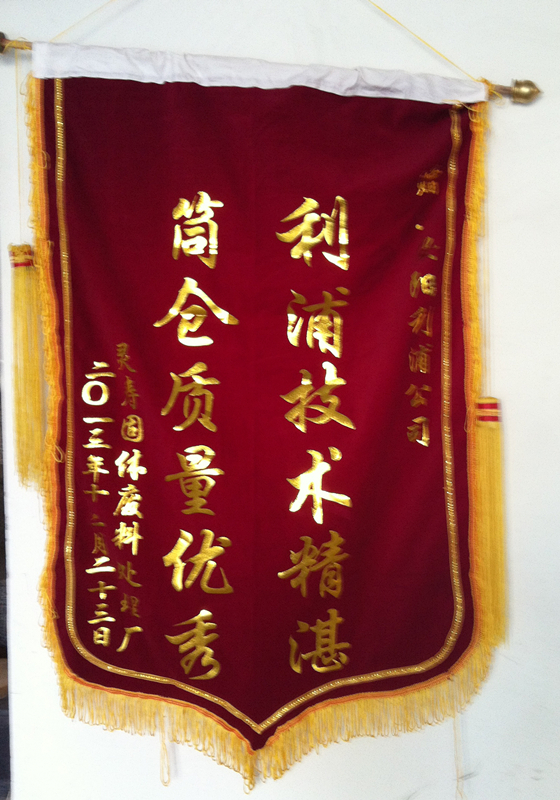 安阳利浦公司
利浦技术精湛
筒仓质量优秀
灵寿固体废料处理厂
二〇一三年十二月二十三日